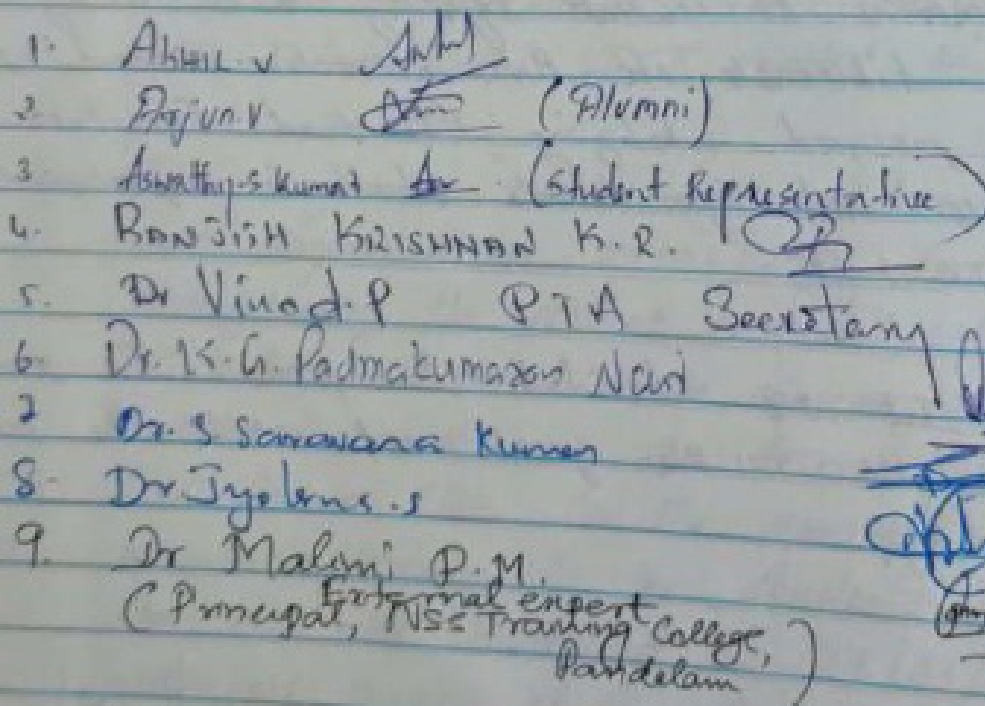 1. AKHIL. V
2. Arjun.V (Alumni)
3 Aswathy.S Kumar (Student Representative)
4. RANJITH KRISHNAN K.R.
5. Dr Vinod.P PTA Secretary
6. Dr. K.G. Padmakumaran Nair
7 Dr. S Saravana Kumar
8. Dr .S
9. Dr Malini P.M.
External expert
(Principal, NSS Training College,
Pandalam)